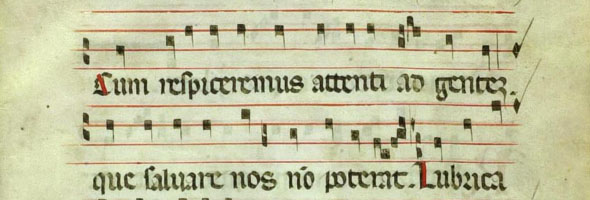 Cum respiceremus attenti ad gentez.
que saluare nos nō poterat. Lubrica